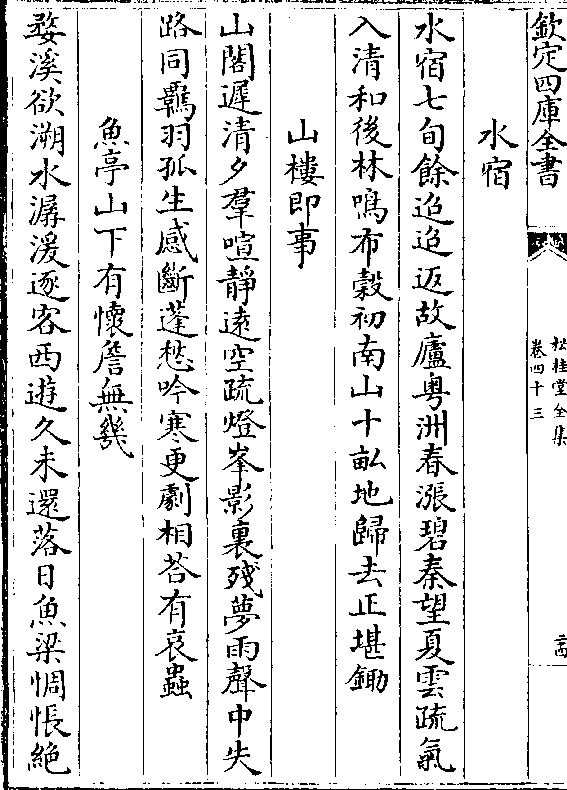 欽定四庫全書
松桂堂全集
卷四十三
二高
水宿
水宿七旬餘迢迢返故廬粤洲春漲碧秦望夏雲疏氣
入清和後林鳴布穀初南山十畝地歸去正堪鋤
山樓即事
山閣遲清夕羣喧靜遠空疏燈峯影裏殘夢雨聲中失
路同羈羽孤生感斷蓬愁吟寒更劇相荅有哀蟲
魚亭山下有懷詹無幾
婺溪欲溯水潺湲逐客西遊久未還落日魚梁惆悵絶